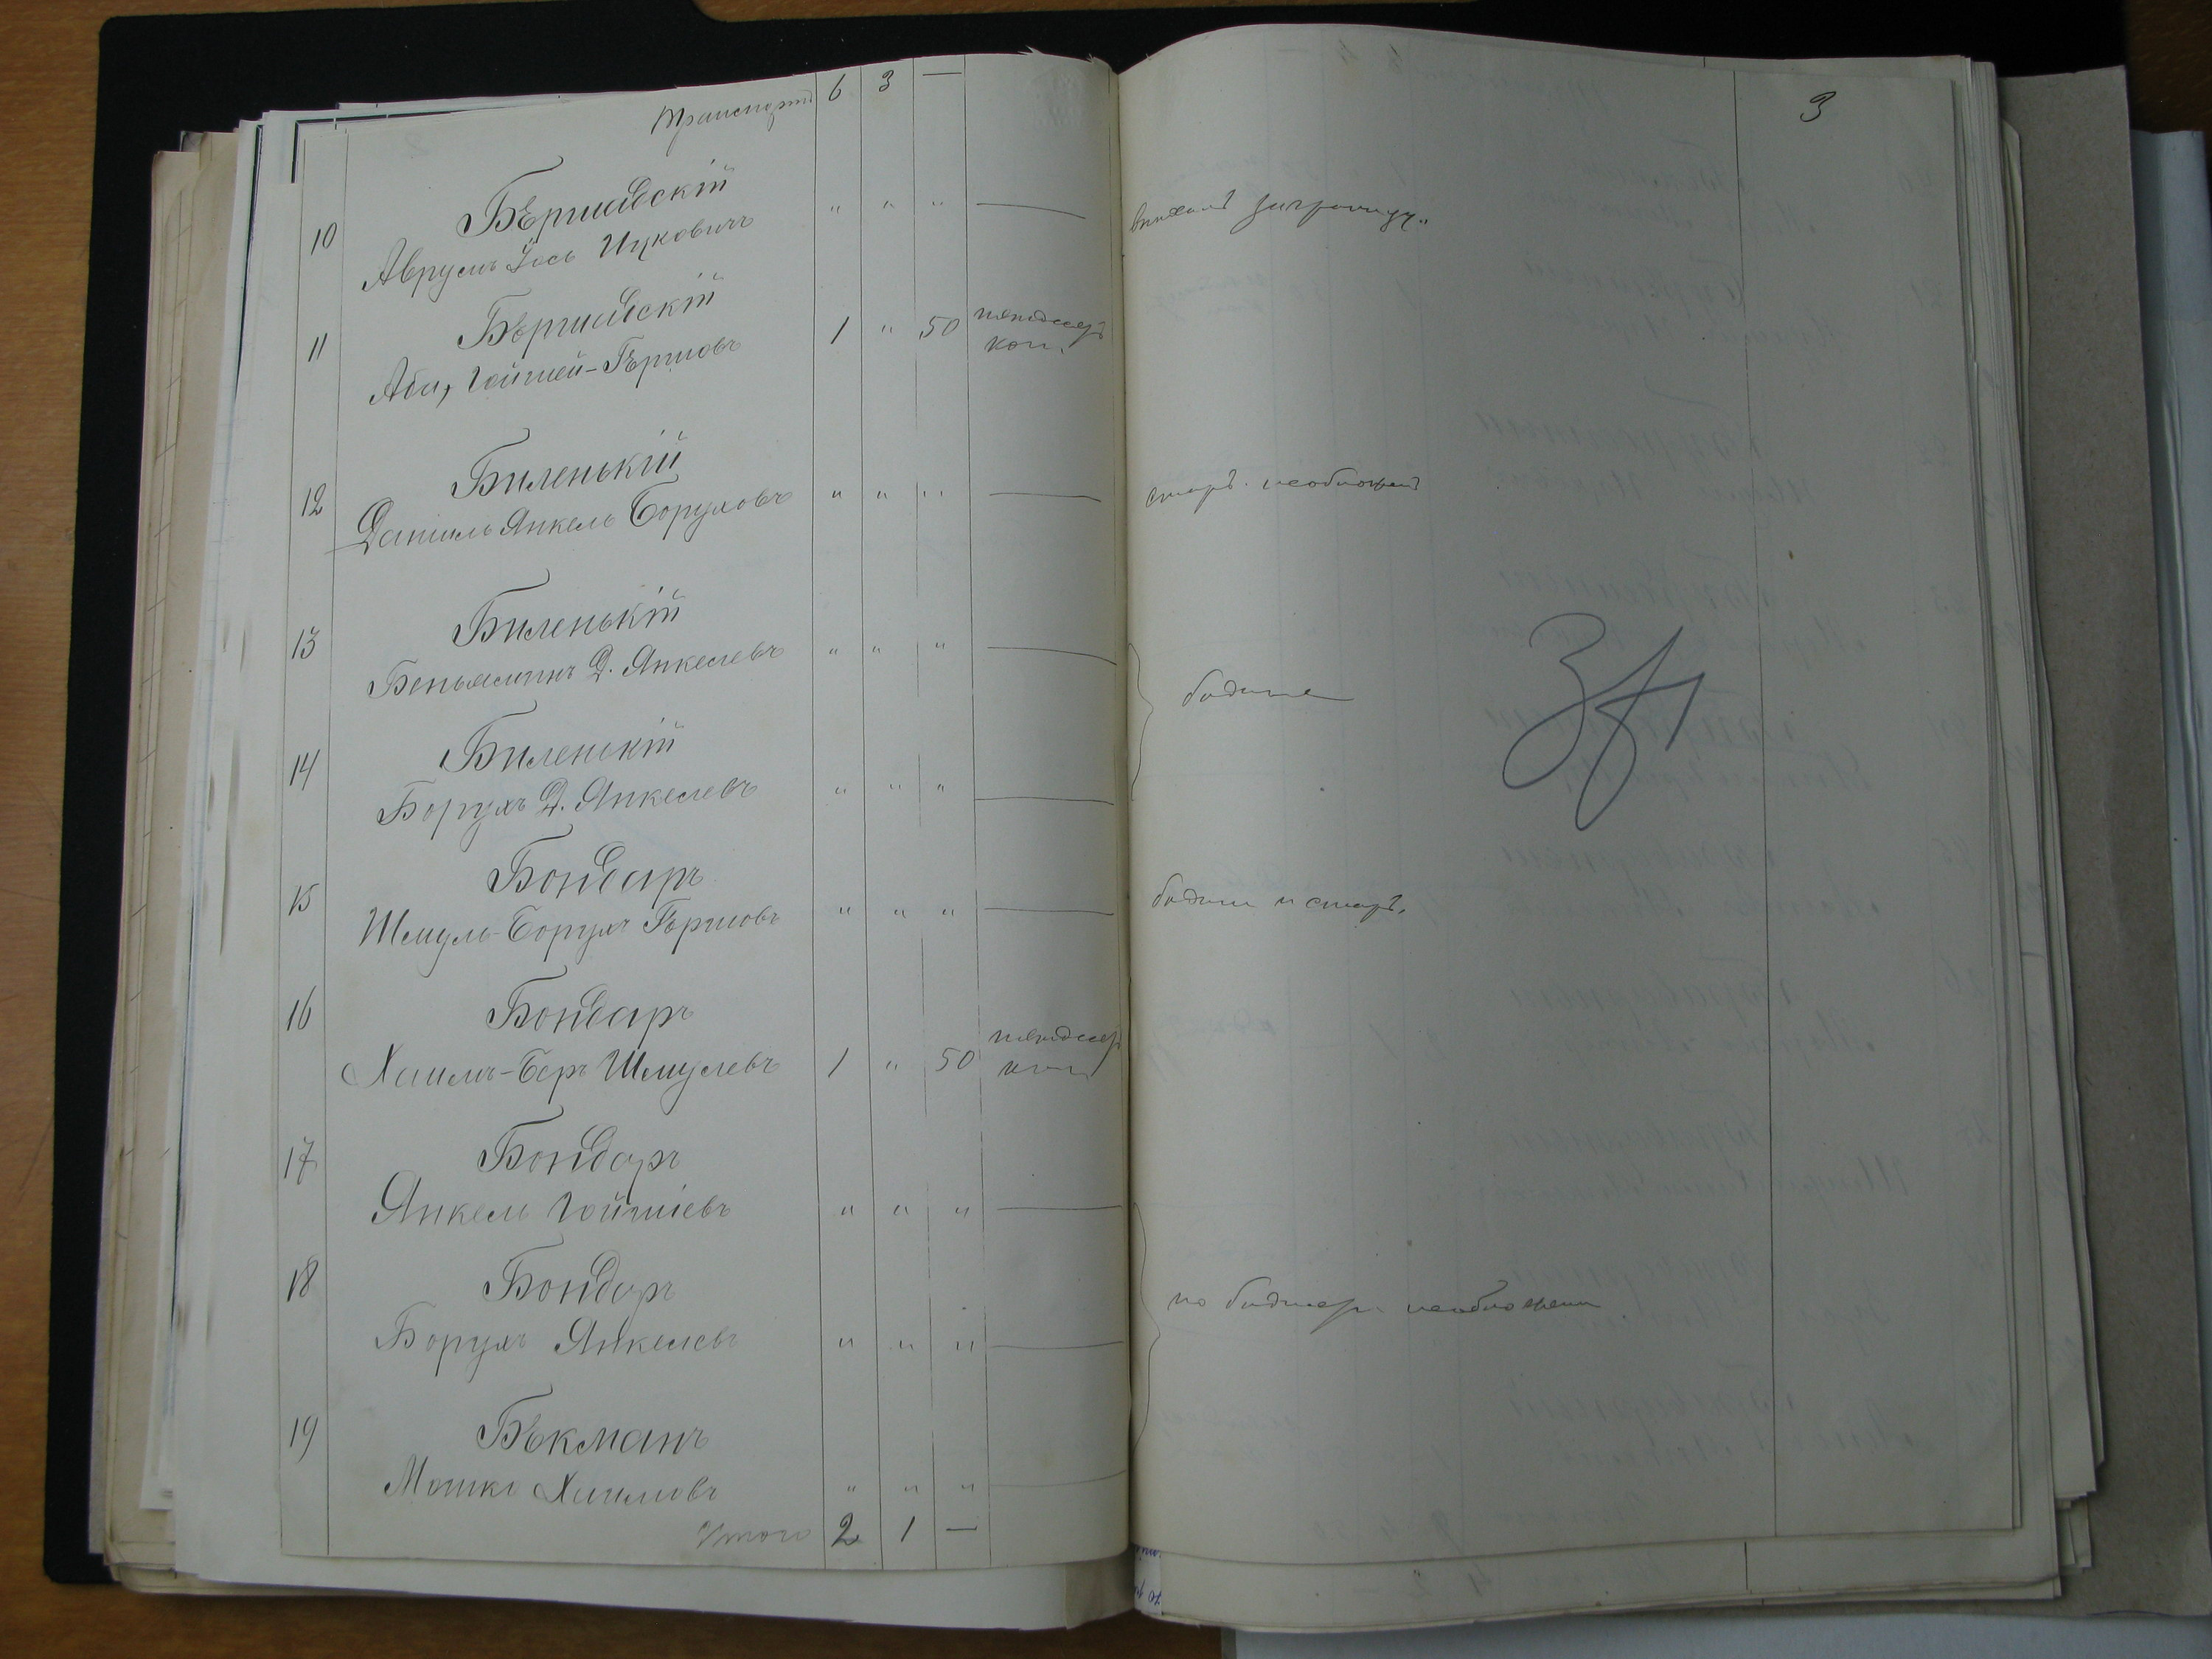 Транспортъ 6 3 —
3
10 Бѣршадскій
Аврумъ Іось Ицковичъ " " " — выехалъ заграницу"
11 Бѣршадскій
Аба, Гойшей-Гѣршовъ 1 " 50 пятдесятъ
коп.
12 Биленькій
Даниль Янкель Боруховъ " " " — старъ необложенъ
13 Биленькій
Беньяминъ Д. Янкелевъ " " " —
бѣдные
14 Биленкій
Борухъ Д. Янкелевъ " " " —
15 Бондаръ
Шмуль-Борухъ Гѣршовъ " " " — бѣдный и старъ.
16 Бондаръ
Хаимъ-Беръ Шмулевъ 1 " 50 пятдесят
коп
17 Бондаръ
Янкель Гойшіевъ " " " —
18 Бондаръ
Борухъ Янкелевъ " " " — по бѣдности необложены
19 Бѣкманъ
Мошко Хаимовъ " " " —
Итого 2 1 —